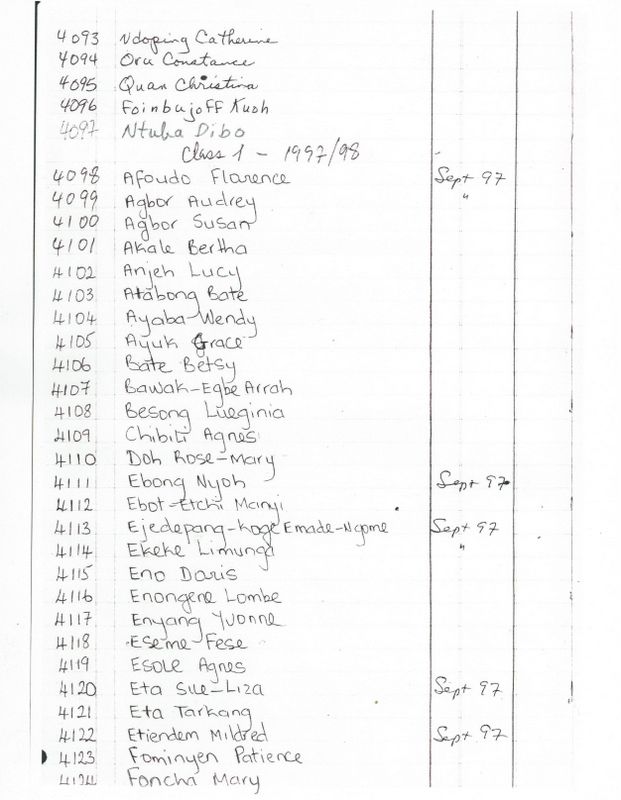 4093 Ndoping Catherine
4094 Oru Constance
4095 Quan Christina
4096 Foinbujoff Kush
4097 Ntuba Dibo
Class 1 - 1997/98
4098 Afoudo Florence Sept 97
4099 Agbor Audrey "
4100 Agbor Susan
4101 Akale Bertha
4102 Anjeh Lucy
4103 Atabong Bate
4104 Ayaba-Wendy
4105 Ayuk Grace
4106 Bate Betsy
4107 Bawak-Egbe Arrah
4108 Besong Lueginia
4109 Chibiti Agnes
4110 Doh Rose-Mary
4111 Ebong Nyoh Sept 97
4112 Ebot-Etchi Manyi
4113 Ejedepang-Koge Emade-Ngome Sept 97
4114 Ekeke Limunga "
4115 Eno Doris
4116 Enongene Lombe
4117 Enyang Yvonne
4118 Eseme-Fese
4119 Esole Agnes
4120 Eta Sue-Liza Sept 97
4121 Eta Tarkang
4122 Etiendem Mildred Sept 97
4123 Fominyen Patience
4124 Foncha Mary